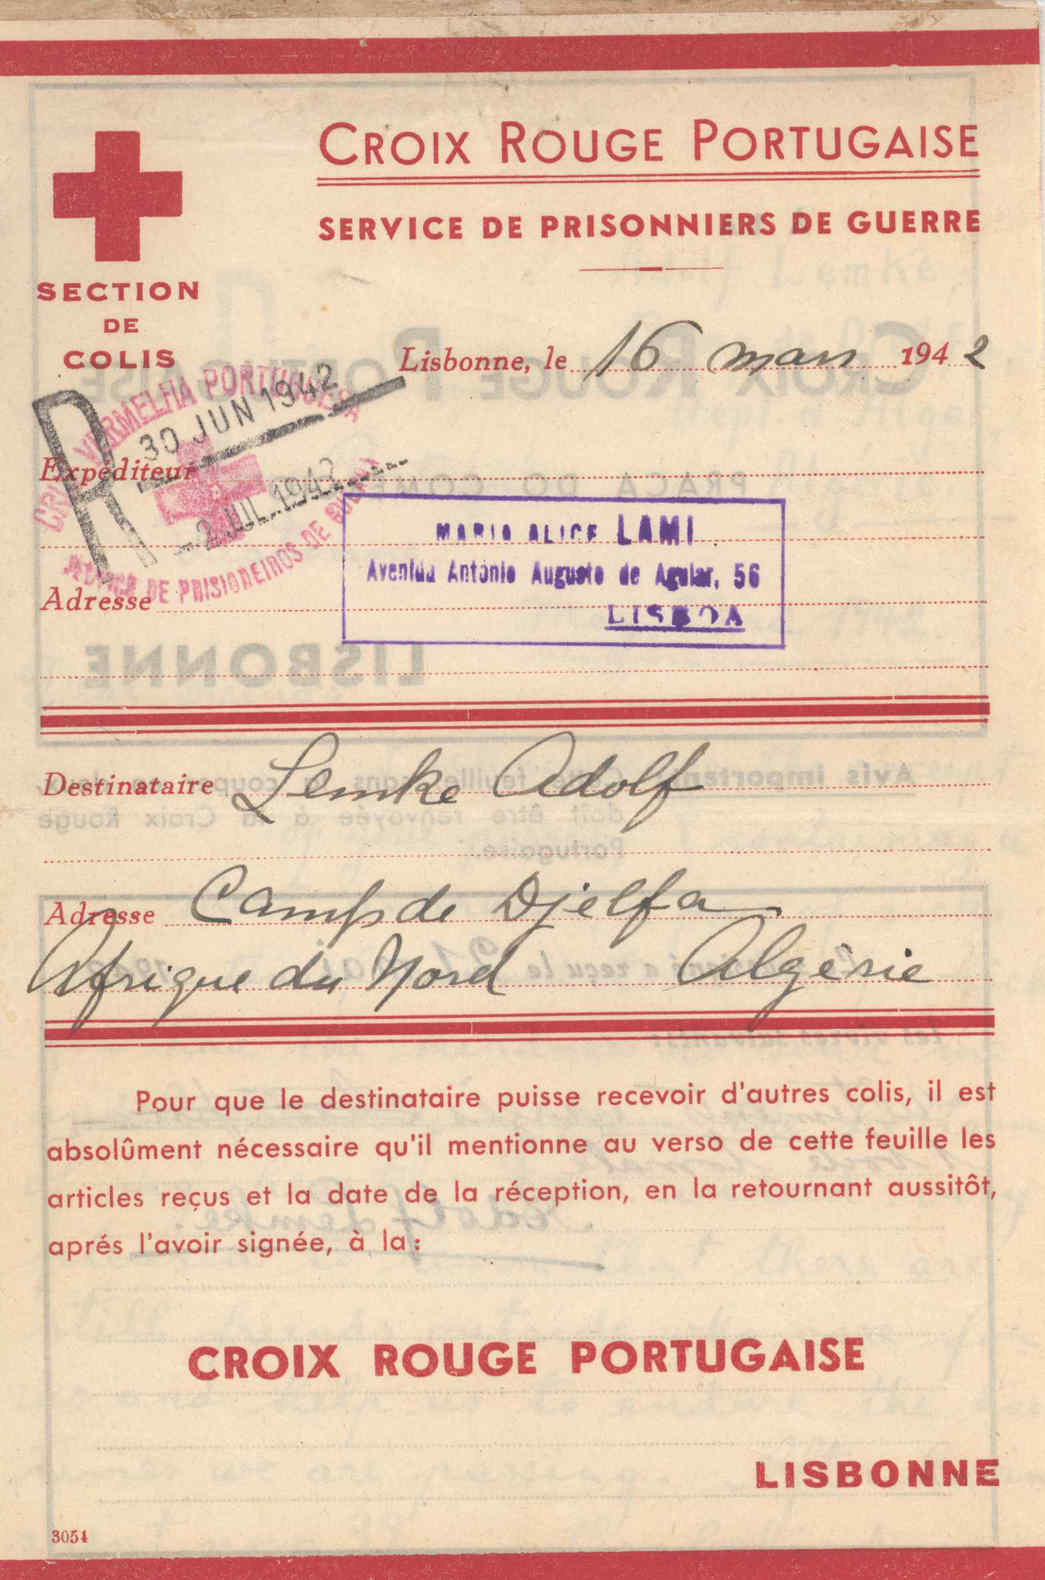 CROIX ROUGE PORTUGAISE
SERVICE DE PRISONNIERS DE GUERRE
SECTION
DE
COLIS
Lisbonne, le 16 mars 1942
VERMELHA PORTUGUESA
R
30 JUN 1942
-2 JUL. 1942
DE PRISIONEIROS DE
Expéditeur
MARIA ALICE LAMI
Avenida António Augusto de Aguiar, 56
LISBOA
Adresse
Destinataire Lemke Adolf
Adresse Camp de Djelfa
Afrique du Nord Algérie
Pour que le destinataire puisse recevoir d'autres colis, il est
absolûment nécessaire qu'il mentionne au verso de cette feuille les
articles reçus et la date de la réception, en la retournant aussitôt,
aprés l'avoir signée, à la:
CROIX ROUGE PORTUGAISE
LISBONNE
3054